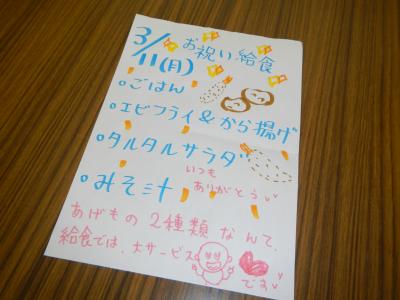 3/11(月)お祝い給食
・ごはん
・エビフライ&から揚げ
・タルタルサラダ
いつも
ありがとう
・みそ汁
あげもの2種類なんて、
給食では、大サービス
です